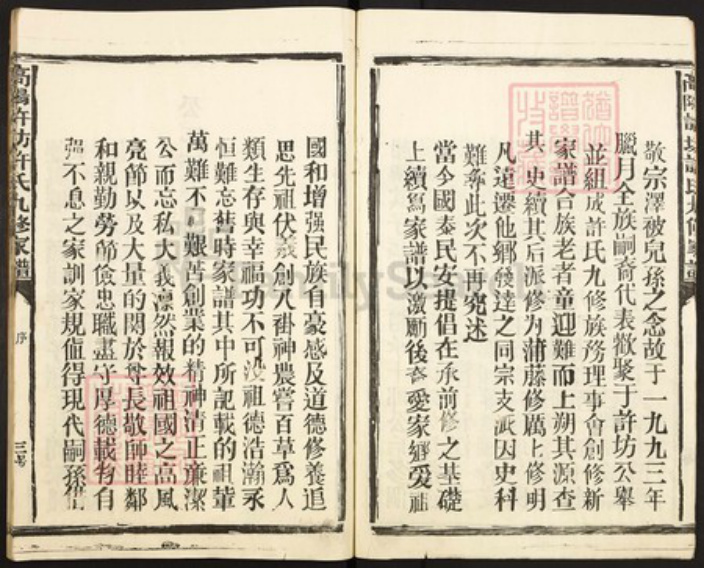 敬宗澤被兒孫之念故于一九九三年
臘月全族嗣裔代表徵聚于許坊公舉
並組成許氏九修族務理事會創修新
家譜合族老者童迎難而上朔其源查
其史續其后派修为蒲藤修厲上修明
凡遠遷他鄉發達之同宗支派因史料
難尋此次不再究述
當今國泰民安提倡在承前修之基礎
上續寫家譜以激勵後裔愛家鄉愛祖
國和增强民族自豪感及道德修養追
思先祖伏羲創八褂神農嘗百草爲人
類生存與幸福功不可没祖德浩瀚永
恒難忘舊時家譜其中所記載的祖輩
萬難不 艱苦創業的精神清正廉潔
公而忘私大義凛然報效祖國之高風
亮節以及大量的関於尊長敬師睦鄰
和親勤勞節儉忠職盡守厚德載物自
强不息之家訓家規值得現代嗣孫
高陽許坊許氏九修家譜
序